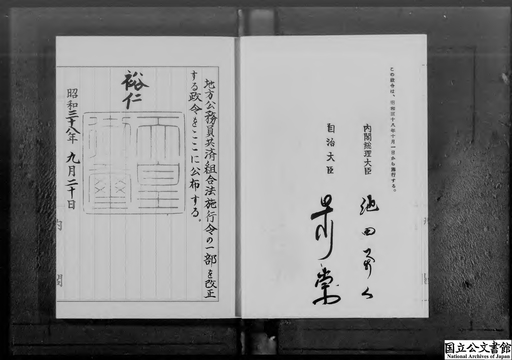 この政令は、昭和三十八年十月一日から施行する。
内閣総理大臣 池田勇人
自治大臣
地方公務員共済組合法施行令の一部を改正
する政令をここに公布する。
裕仁
天皇御璽
昭和三十八年九月二十日
内閣
国立公文書館
National Archives of Japan